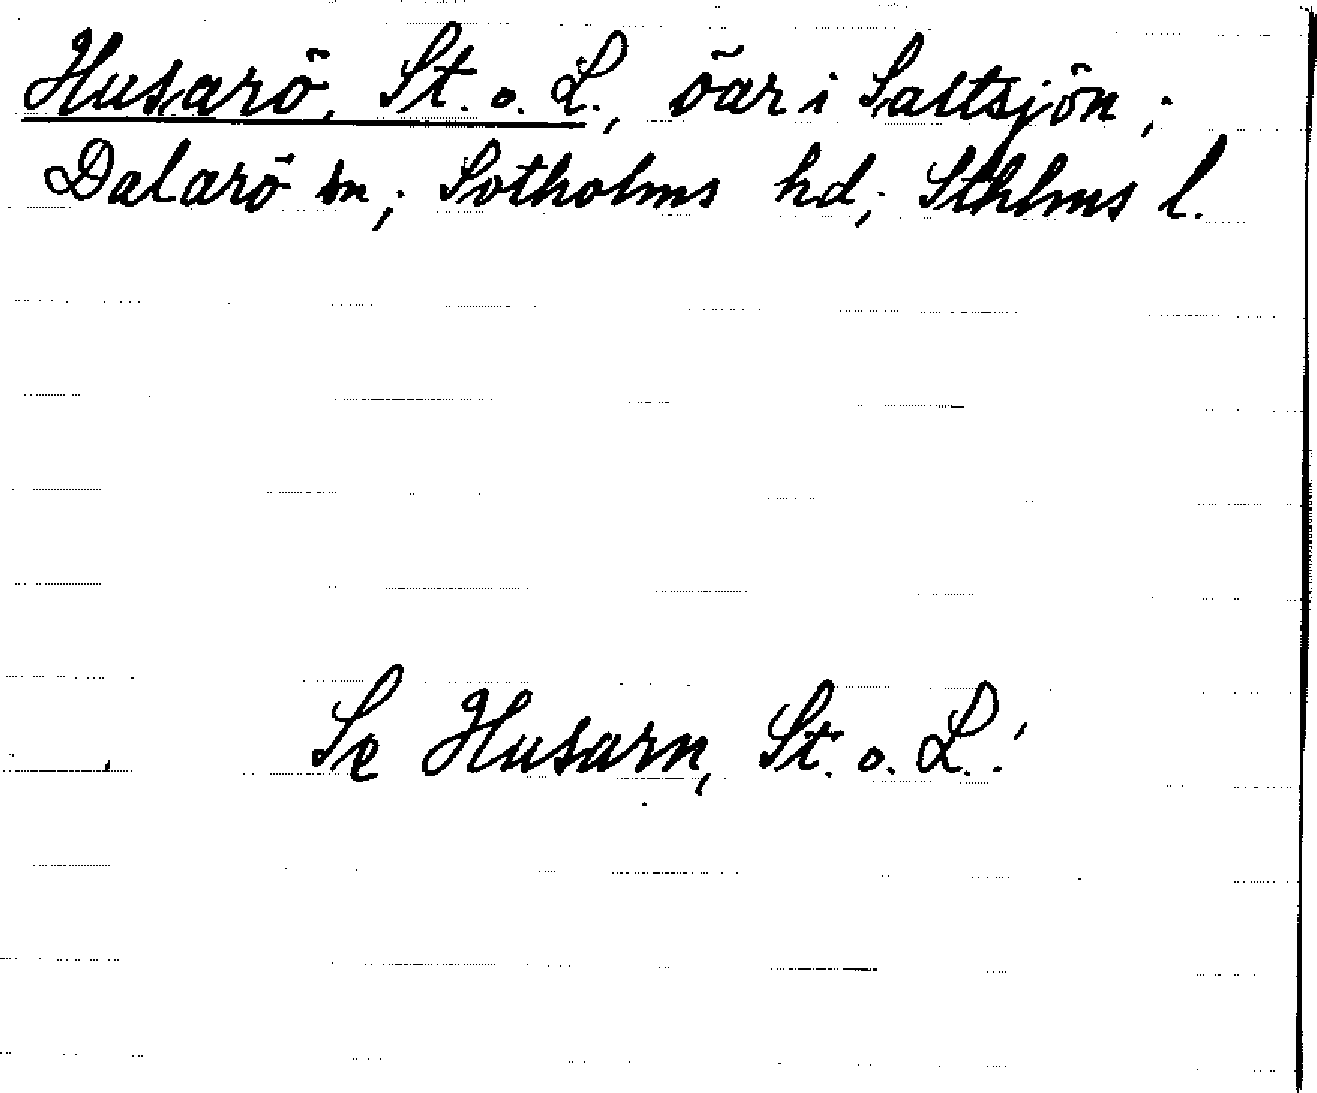 Husarö, St. o. L., öar i Saltsjön;
Dalarö sn; Sotholms hd; Sthlms l.
Se Husarn, St. o. L.!